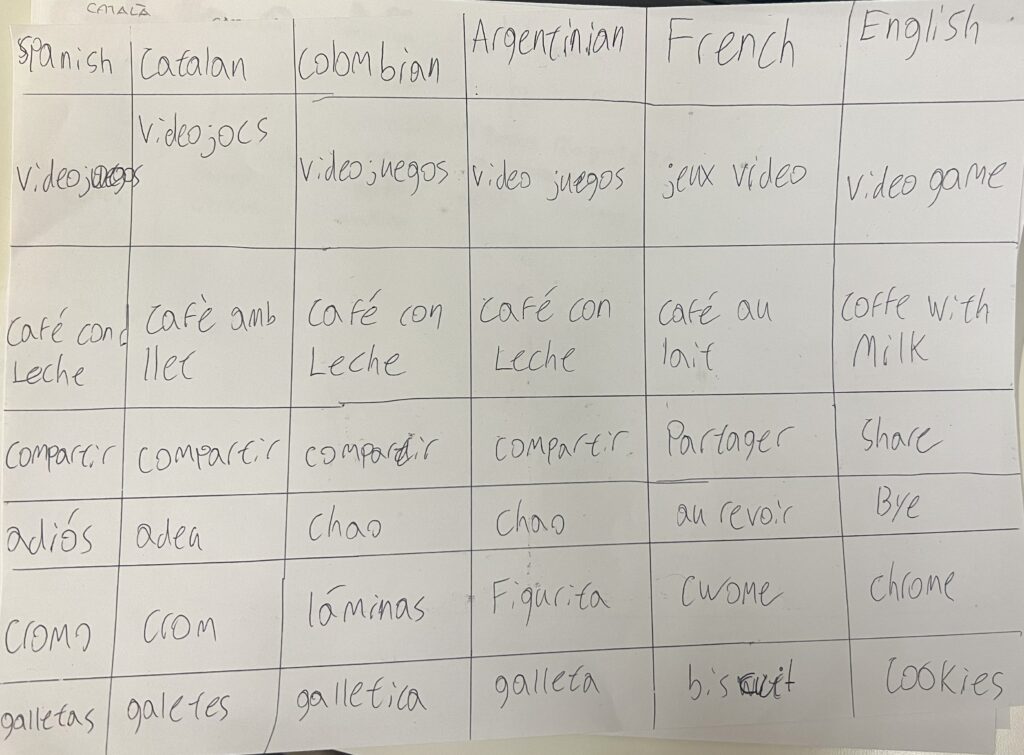 CATALÀ
Spanish Catalan Colombian Argentinian French English
videojuegos videojocs videojuegos video juegos jeux video video game
café con cafè amb café con café con café au coffe with
Leche llet Leche Leche lait Milk
compartir compartir compartir compartir Partager share
adiós adeu chao chao au revoir Bye
cromo crom láminas Figurita cwome chrome
galletas galetes galletica galleta biscuit cookies